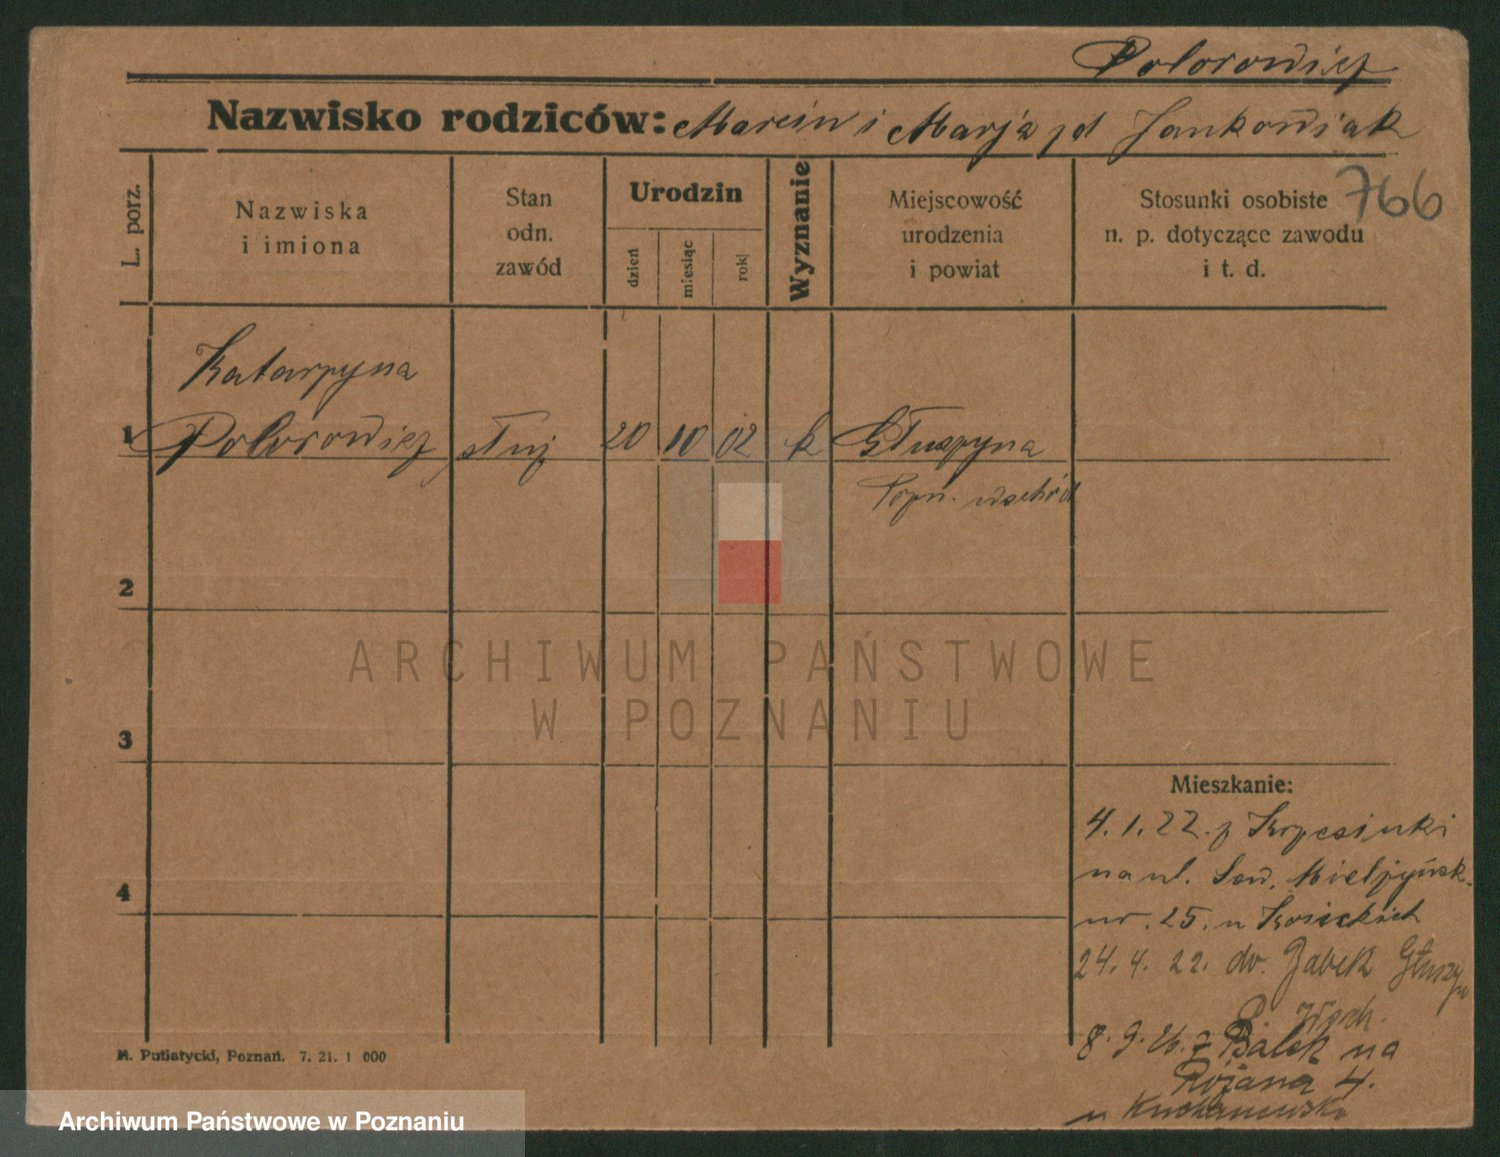 Polorowicz
Nazwisko rodziców: Marcin i Marja zd Jankowiak
766
L. porz.
Nazwiska
i imiona
Stan
odn.
zawód
Urodzin
dzień
miesiąc
rok
Wyznanie
Miejscowość
urodzenia
i powiat
Stosunki osobiste
n. p. dotyczące zawodu
i t. d.
Katarzyna
1 Polorowicz służ 20 10 02 k Głuszyna
Pozn. wschód
2
3
4
ARCHIWUM PAŃSTWOWE
W POZNANIU
Mieszkanie:
4.1.22. z Krzesinki
na ul. Sew. Mielżyńsk.
nr. 25. u
24.4.22. do Głuszyn
P. Wsch.
8.9.26. z Balek na
4.
u
M. Putiatycki, Poznań. 7. 21. 1 000
Archiwum Państwowe w Poznaniu